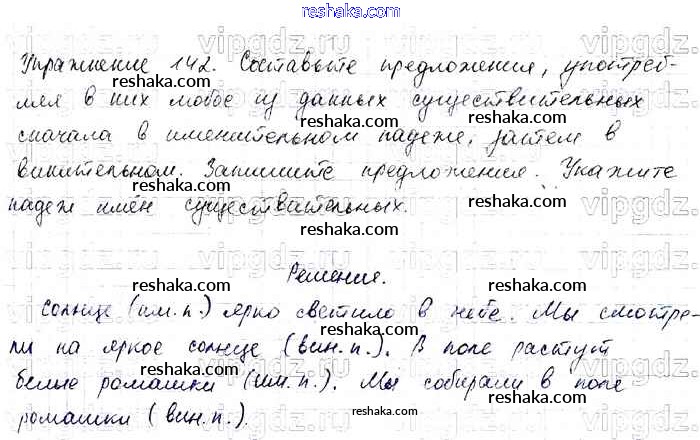 reshaka.com
Упражнение 142. Составьте предложения, употреб-
ляя в них любое из данных существительных
сначала в именительном падеже, затем в
винительном. Запишите предложения. Укажите
падеж имён существительных.
Решение.
Солнце (им.п.) ярко светило в небе. Мы смотре-
ли на яркое солнце (вин.п.). В поле растут
белые ромашки (им.п.). Мы собирали в поле
ромашки (вин.п.).